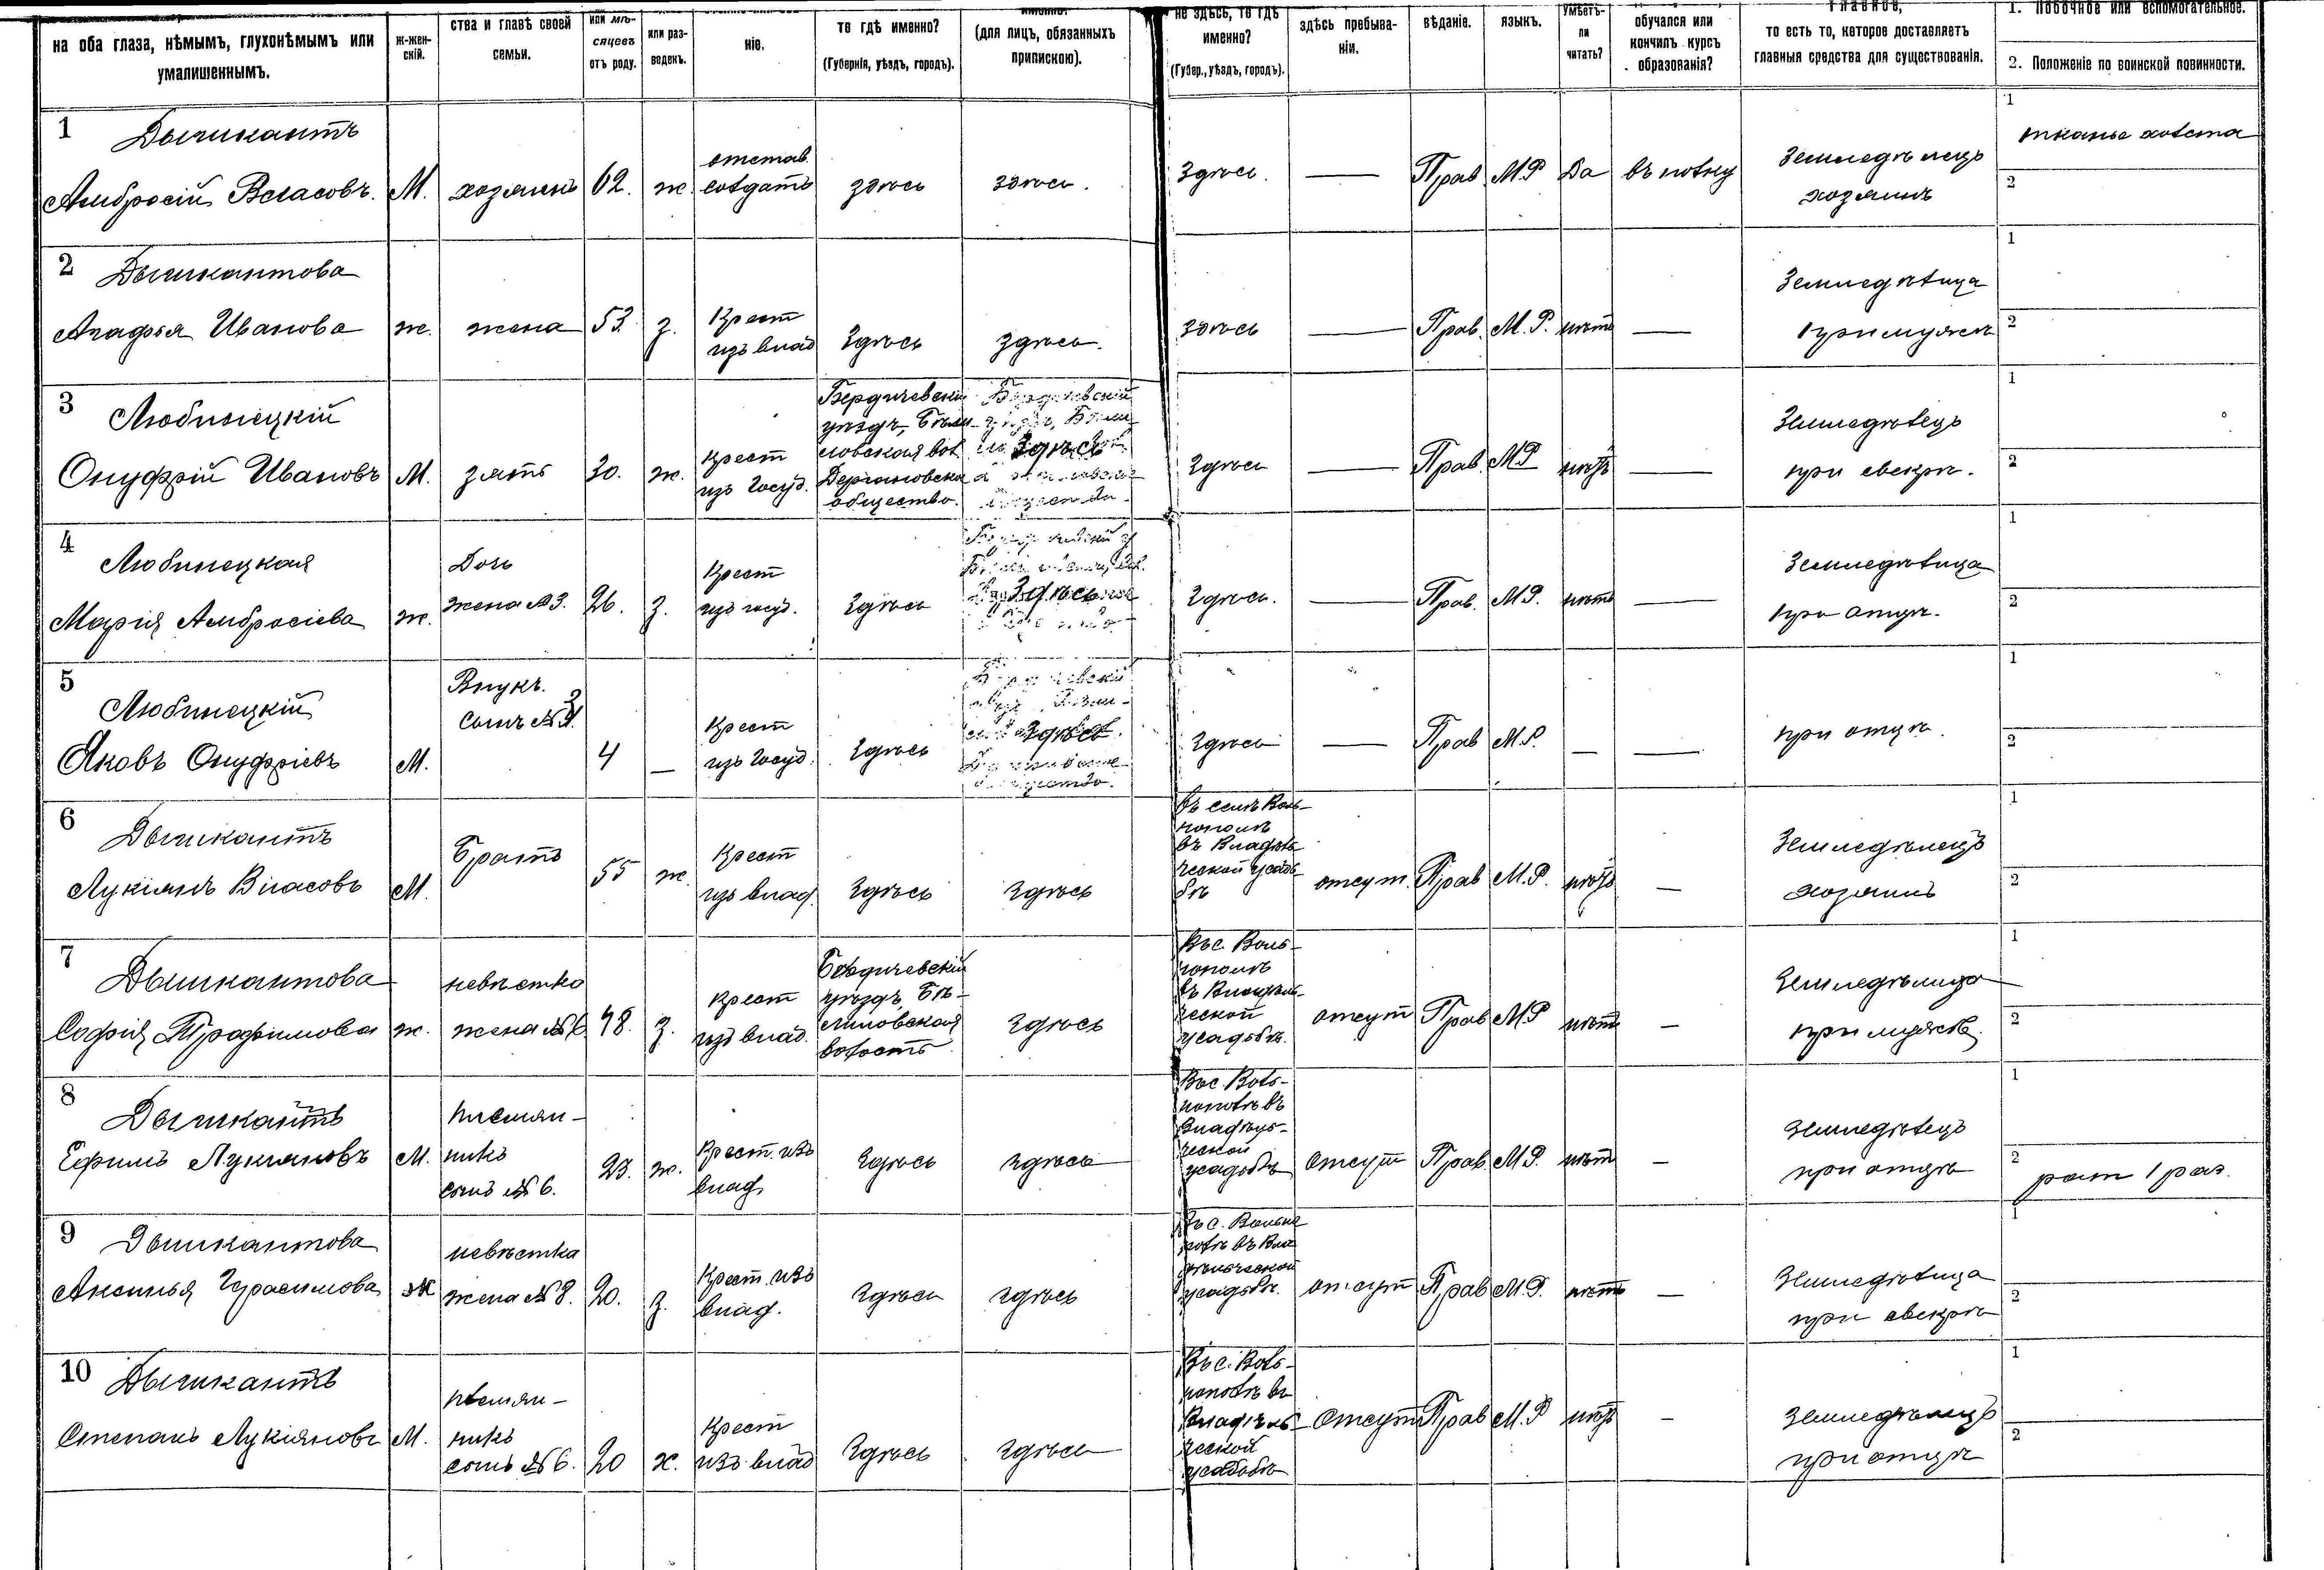 на оба глаза, нѣмымъ, глухонѣмымъ или
умалишеннымъ.
ж-жен-
скій.
ства и главѣ своей
семьи.
или мѣ-
сяцевъ
отъ роду.
или раз-
веденъ.
ніе.
то гдѣ именно?
(Губернія, уѣздъ, городъ).
(для лицъ, обязанныхъ
припискою).
не здѣсь, то гдѣ
именно?
(Губер., уѣздъ, городъ).
здѣсь пребыва-
ніи.
вѣданіе.
языкъ.
Умѣетъ-
ли
читать?
обучался или
кончилъ курсъ
образованія?
главное,
то есть то, которое доставляетъ
главныя средства для существованія.
1. Побочное или вспомогательное.
2. Положеніе по воинской повинности.
1
Дышкантъ
Амбросій Власовъ.
М.
хозяинъ
62.
ж.
отстав.
солдатъ
здѣсь
здѣсь.
Здѣсь.
—
Прав
М.Р
Да
въ полку
Земледѣлецъ
хозяинъ
1
тканье холста
2
2
Дышкантова
Агафья Иванова
ж.
жена
53.
з.
Крест
изъ влад
Здѣсь
здѣсь.
здѣсь
—
Прав.
М. Р.
нѣтъ
—
Земледѣлица
при мужѣ
1
2
3
Любинецкій
Онуфрій Ивановъ
М.
зять
30.
ж.
крест
изъ Госуд.
Бердичевскій
уѣздъ, Бѣли-
ловская вол
общество.
Здѣсь
Здѣсь
—
Прав.
М.Р
нѣтъ
—
Земледѣлецъ
при свекрѣ.
1
2
4
Любинецкая
Марія Амбросіева
ж.
Дочь
жена №3.
26.
з.
Крест
изъ госуд.
Здѣсь
Здѣсь
Здѣсь.
—
Прав.
М.Р.
нѣтъ
—
Земледѣлица
при отцѣ.
1
2
5
Любинецкій
Яковъ Онуфріевъ
М.
Внукъ.
сынъ №3
4
—
Крест
изъ Госуд.
Здѣсь
Здѣсь.
Здѣсь
—
Прав
М.Р.
—
—
при отцѣ.
1
2
6
Дышкантъ
Лукіянъ Власовъ
М.
Братъ
55
ж.
Крест
изъ влад.
Здѣсь
Здѣсь
въ селѣ Воль-
нополѣ
въ Владѣль
ческой усадь
бѣ
отсут.
Прав
М.Р.
нѣтъ
—
Земледѣлецъ
хозяинъ
1
2
7
Дышкантова
Софія Трофимова
ж.
невѣстка
жена №6
48.
з.
крест
изъ влад.
Бердичевскій
уѣздъ, Бѣ-
лиловская
волость
Здѣсь
Въ с. Воль-
нополѣ
въ Владѣль-
ческой
усадьбѣ.
отсут
Прав
М.Р
нѣтъ
—
Земледѣлица
при мужѣ.
1
2
8
Дышкантъ
Ефимъ Лукіяновъ
М.
племян-
никъ
сынъ №6.
23.
ж.
Крест. изъ
влад.
Здѣсь
здѣсь
Въ с. Воль-
нополѣ въ
Владѣль-
ческой
усадьбѣ
Отсут
Прав.
М.Р.
нѣт
—
Земледѣлецъ
при отцѣ
1
2
рат 1 раз.
9
Дышкантова
Аксинья Герасимова
Ж
невѣстка
жена №8.
20.
з.
Крест. изъ
влад.
Здѣсь
здѣсь
Въ с. Вольно
полѣ въ Вла
дѣльческой
усадьбѣ.
отсут
Прав
М.Р.
нѣтъ
—
Земледѣлица
при свекрѣ
1
2
10
Дышкантъ
Степанъ Лукіяновъ
М.
племян-
никъ
сынъ №6.
20
х.
Крест
изъ влад
Здѣсь
здѣсь
Въ с. Воль-
нополѣ въ
Владѣль-
ческой
усадьбѣ
Отсут
Прав
М.Р
нѣтъ
—
Земледѣлецъ
при отцѣ
1
2